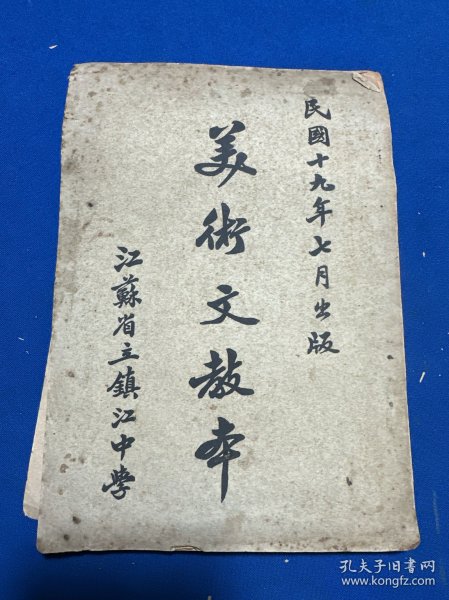 民國十九年七月出版
美術文教本
江蘇省立鎮江中學
孔夫子旧书网
www.kongfz.com